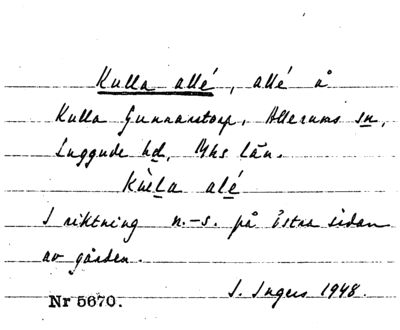 Kulla allé, allé å
Kulla Gunnarstorp, Allerums sn,
Luggude hd, Mhs län.
Kùlla alé
I riktning n.-s. på östra sidan
av gården.
Nr 5670. I. Ingers 1948.